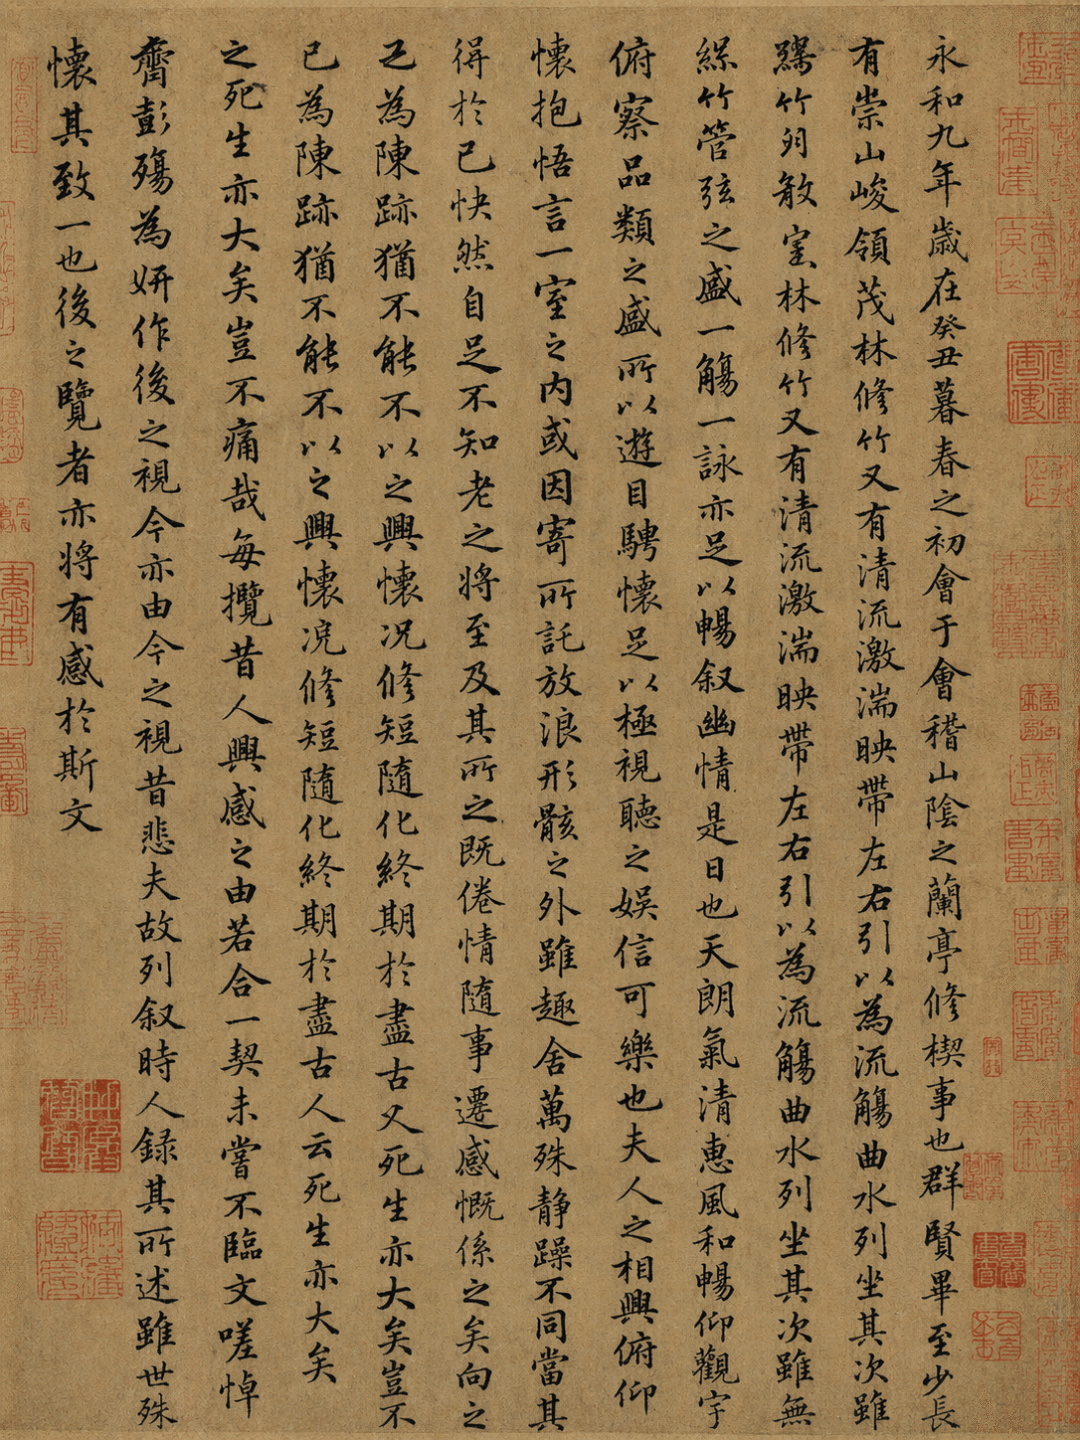 永和九年歲在癸丑暮春之初會于會稽山陰之蘭亭修楔事也群賢畢至少長
有崇山峻領茂林修竹又有清流激湍映帶左右引以為流觴曲水列坐其次雖
竹林修竹又有清流激湍映帶左右引以為流觴曲水列坐其次雖無
竹管弦之盛一觴一詠亦足以暢叙幽情是日也天朗氣清惠風和暢仰觀宇
俯察品類之盛所以遊目騁懷足以極視聽之娛信可樂也夫人之相興俯仰
懷抱悟言一室之内或因寄所託放浪形骸之外雖趣舍萬殊静躁不同當其
得於己快然自足不知老之將至及其所之既倦情隨事遷感慨係之矣向之
已為陳跡猶不能不以之興懷况修短隨化終期於盡古又死生亦大矣豈不
已為陳跡猶不能不以之興懷况修短隨化終期於盡古人云死生亦大矣
之死生亦大矣豈不痛哉每攬昔人興感之由若合一契未嘗不臨文嗟悼
齊彭殤為妍作後之視今亦由今之視昔悲夫故列叙時人録其所述雖世殊
懷其致一也後之覽者亦將有感於斯文